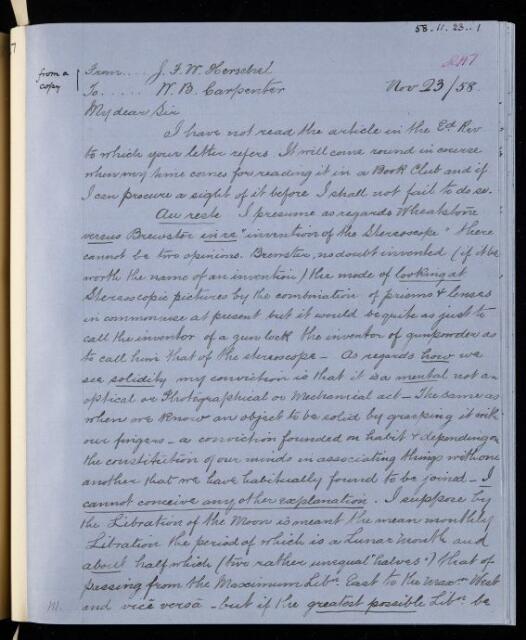 58.11.23..1
from a copy
From.... J. F. W. Herschel
To...... W. B. Carpenter
Nov 23/58
My dear Sir
I have not read the article in the Ed Rev
to which your letter refers. It will come round in course
when my time comes for reading it in a Book Club and if
I can procure a sight of it before I shall not fail to do so.
Au reste I presume as regards Wheatstone
versus Brewster in re "invention of the Stereoscope" there
cannot be two opinions. Brewster, no doubt invented (if it be
worth the name of an invention) the mode of looking at
Stereoscopic pictures by the combination of prisms & lenses
in common use at present but it would be quite as just to
call the inventor of a gun lock the inventor of gunpowder as
to call him that of the stereoscope – As regards how we
see solidity my conviction is that it is a mental not an
optical or Photographical or Mechanical act – The same as
when we know an object to be solid by grasping it with
our fingers – a conviction founded on habit & depending on
the constitution of our minds in associating things with one
another that we have habitually found to be joined – I
cannot conceive any other explanation. I suppose by
the Libration of the Moon is meant the mean monthly
Libration the period of which is a Lunar month and
about half which (two rather unequal "halves") that of
passing from the Maximum Libn. East to the maxm West
and vice versâ – but if the greatest possible Libn. be